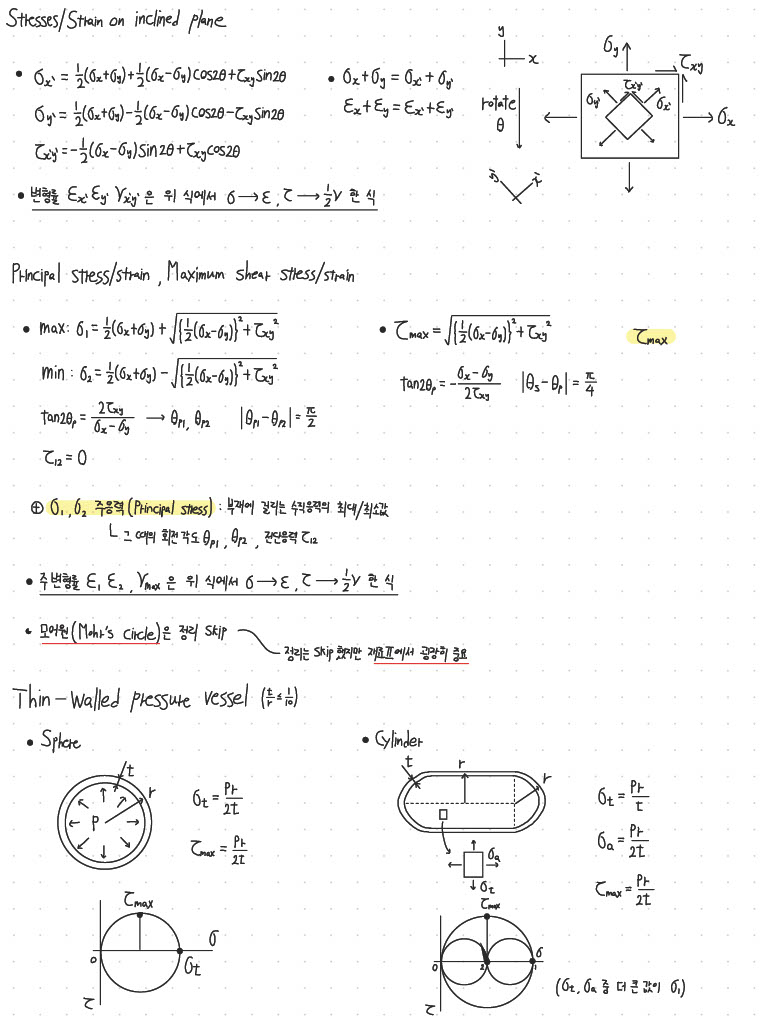 Stresses/Strain on inclined plane
• σx' = 1/2(σx+σy)+1/2(σx-σy)cos2θ+τxy sin2θ
σy' = 1/2(σx+σy)-1/2(σx-σy)cos2θ-τxy sin2θ
τx'y' = -1/2(σx-σy)sin2θ+τxy cos2θ
• σx+σy = σx'+σy'
εx+εy = εx'+εy'
y
x
rotate
θ
y'
x'
σy
τxy
σy'
τx'y'
σx'
σx
• 변형률 εx' εy' γx'y' 은 위 식에서 σ→ε, τ→1/2γ 한 식
Principal stress/strain, Maximum shear stress/strain
• max: σ1 = 1/2(σx+σy) + √({1/2(σx-σy)}²+τxy²)
min: σ2 = 1/2(σx+σy) - √({1/2(σx-σy)}²+τxy²)
tan2θp = 2τxy/(σx-σy) → θp1, θp2 |θp1-θp2| = π/2
τ12 = 0
• τmax = √({1/2(σx-σy)}²+τxy²)
τmax
tan2θp = -(σx-σy)/2τxy |θs-θp| = π/4
⊕ σ1, σ2 주응력(Principal stress) : 부재에 걸리는 수직응력의 최대/최소값
└ 그 때의 회전각도 θp1, θp2, 전단응력 τ12
• 주변형률 ε1 ε2, γmax 은 위 식에서 σ→ε, τ→1/2γ 한 식
• 모어원(Mohr's circle)은 정리 skip
정리는 skip 했지만 재료표에서 굉장히 중요
Thin-Walled pressure vessel (t/r ≤ 1/10)
• Sphere
t
r
P
σt = Pr/2t
τmax = Pr/2t
τmax
σ
0
σt
τ
• Cylinder
t
r
r
σa
σt
σt = Pr/t
σa = Pr/2t
τmax = Pr/2t
τmax
σ
0
2
1
τ
(σt, σa 중 더 큰 값이 σ1)